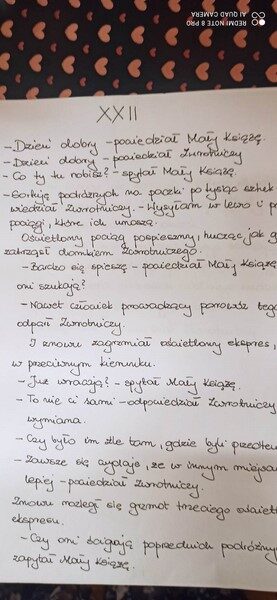 REDMI NOTE 8 PRO
AI QUAD CAMERA
XXII
- Dzień dobry - powiedział Mały Książę.
- Dzień dobry - powiedział Zwrotniczy
- Co ty tu robisz? - spytał Mały Książę.
- Sortuję podróżnych na paczki po tysiąc sztuk
wiedział Zwrotniczy. - Wysyłam w lewo i p
pociągi, które ich unoszą.
Oświetlony pociąg pospieszny, hucząc jak g
zatrząsł domkiem Zwrotniczego.
- Bardzo się spieszą - powiedział Mały Książę
oni szukają?
- Nawet człowiek prowadzący parowóz tego
odparł Zwrotniczy.
I znowu zagrzmiał oświetlony ekspres,
w przeciwnym kierunku.
- Już wracają? - spytał Mały Książę.
- To nie ci sami - odpowiedział Zwrotniczy
wymiana.
- Czy było im źle tam, gdzie byli przedtem
- Zawsze się wydaje, że w innym miejsc
lepiej - powiedział Zwrotniczy.
Znowu rozległ się grzmot trzeciego oświetl
ekspresu.
- Czy oni ścigają poprzednich podróżny
zapytał Mały Książę.